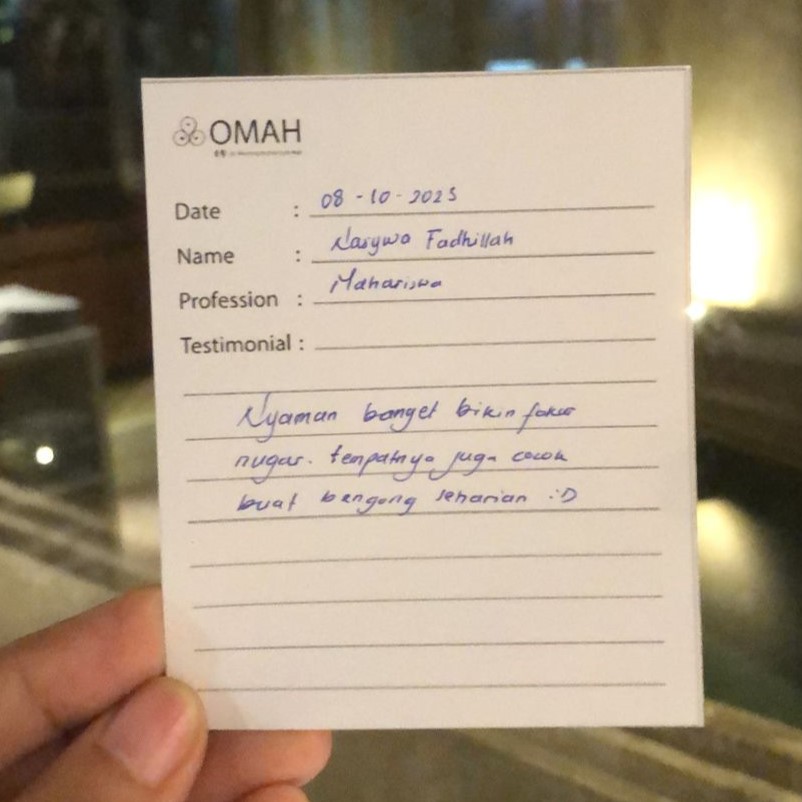 OMAH
Date : 08-10-2025
Name : Narywa Fadhillah
Profession : Mahasiswa
Testimonial :
Nyaman banget bikin fokus
nugas. tempatnya juga cocok
buat bengong seharian :D